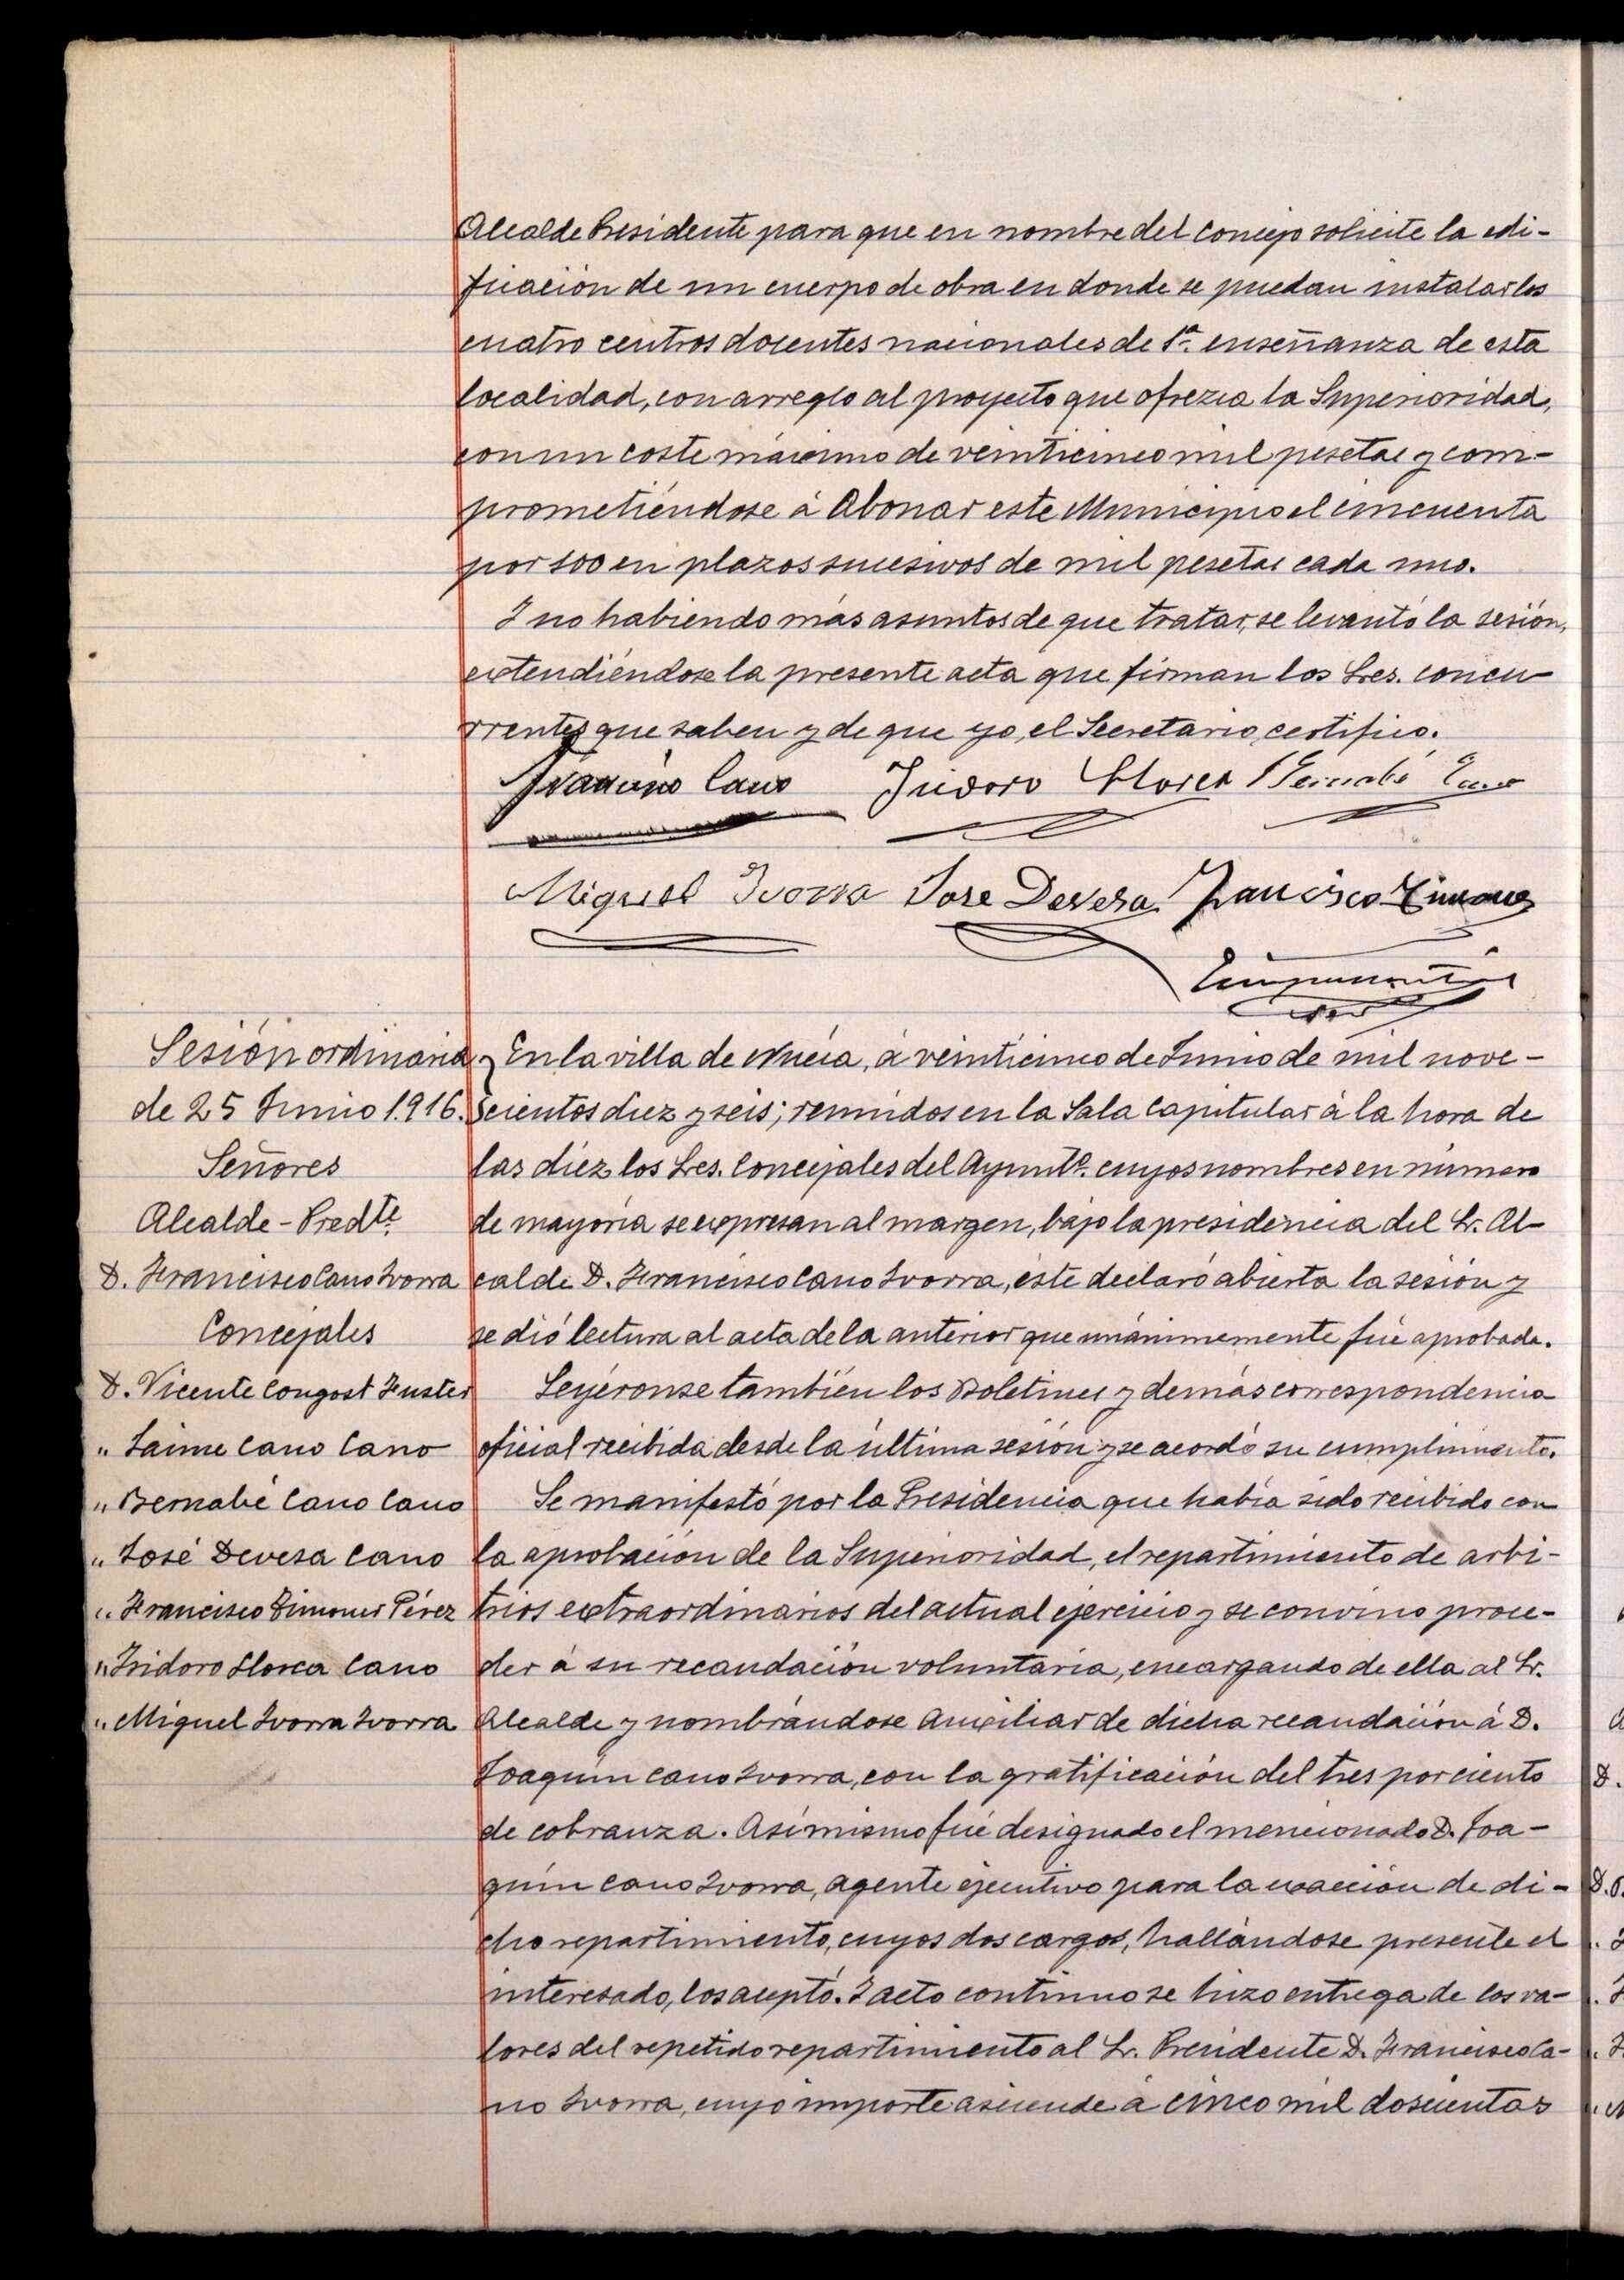 Alcalde Presidente para que en nombre del concejo solicite la edi-
ficación de un cuerpo de obra en donde se puedan instalar los
cuatro centros docentes nacionales de 1ª. enseñanza de esta
localidad, con arreglo al proyecto que ofrezca la Superioridad,
con un coste máximo de veinticinco mil pesetas y com-
prometiéndose á Abonar este Municipio el cincuenta
por 100 en plazos sucesivos de mil pesetas cada uno.
Y no habiendo más asuntos de que tratar, se levantó la sesión,
extendiéndose la presente acta que firman los Sres. concu-
rrentes que saben y de que yo, el Secretario, certifico.
Cano Isidoro Llorca Bernabé Cano
Miguel Ivorra Jose Devesa Francisco Zimones
Sesión ordinaria
de 25 Junio 1.916.
Señores
Alcalde-Predte.
D. Francisco Cano Ivorra
Concejales
D. Vicente Congost Fuster
" Jaime Cano Cano
" Bernabé Cano Cano
" José Devesa Cano
" Francisco Zimones Pérez
" Isidoro Llorca Cano
" Miguel Ivorra Ivorra
En la villa de Nucía, á veinticinco de Junio de mil nove-
cientos diez y seis; reunidos en la Sala Capitular á la hora de
las diez los Sres. Concejales del Ayuntº. cuyos nombres en número
de mayoría se expresan al margen, bajo la presidencia del Sr. Al-
calde D. Francisco Cano Ivorra, éste declaró abierta la sesión y
se dió lectura al acta de la anterior que unánimemente fué aprobada.
Leyéronse también los Boletines y demás correspondencia
oficial recibida desde la última sesión y se acordó su cumplimiento.
Se manifestó por la Presidencia que había sido recibido con
la aprobación de la Superioridad, el repartimiento de arbi-
trios extraordinarios del actual ejercicio y se convino proce-
der á su recaudación voluntaria, encargando de ella al Sr.
Alcalde y nombrándose Auxiliar de dicha recaudación á D.
Joaquín Cano Ivorra, con la gratificación del tres por ciento
de cobranza. Asímismo fué designado el mencionado D. Joa-
quín Cano Ivorra, agente ejecutivo para la exacción de di-
cho repartimiento, cuyos dos cargos, hallándose presente el
interesado, los aceptó. Y acto contínuo se hizo entrega de los va-
lores del repetido repartimiento al Sr. Presidente D. Francisco Ca-
no Ivorra, cuyo importe asciende á cinco mil doscientas